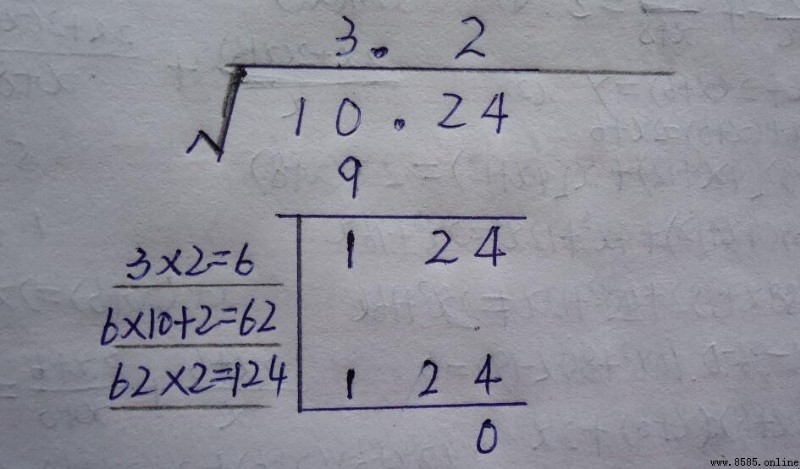 3.2
√10.24
9
1 24
3×2=6
6×10+2=62
62×2=124
1 24
0
www.8585.online